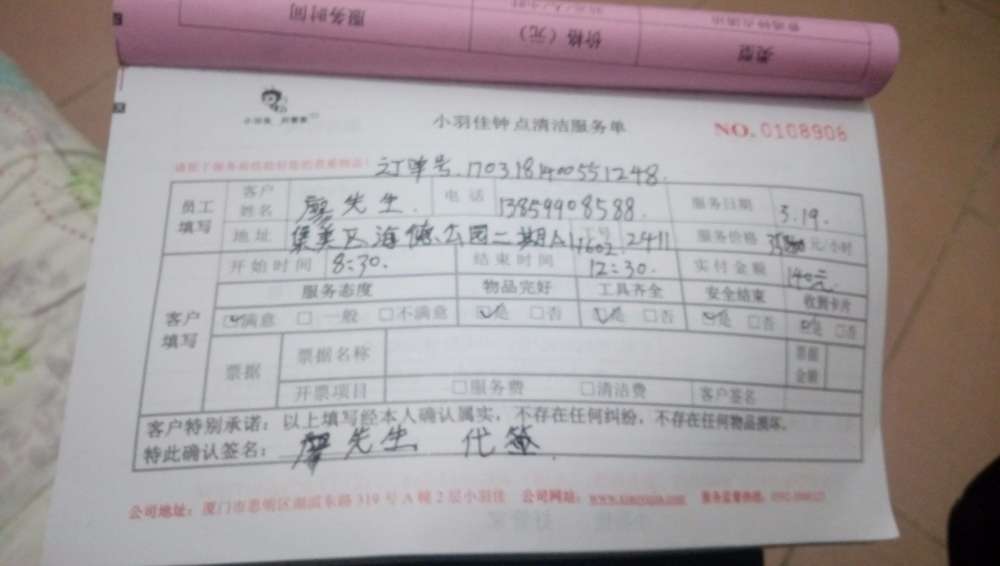 服务时间 价格（元） 类型
小羽佳钟点清洁服务单 NO.0108906
订单号.1703181400551248.
员工填写 客户姓名 廖先生. 电话 13859908588. 服务日期 3.19.
地址 集美区海德公园二期 1602 工号 2411 服务价格 35 元/小时
开始时间 8:30. 结束时间 12:30. 实付金额 140元
客户填写 服务态度 物品完好 工具齐全 安全结束 收到卡片
☑满意 □一般 □不满意 ☑是 □否 ☑是 □否 ☑是 □否 ☑是 □否
票据 票据名称 票据金额
开票项目 □服务费 □清洁费 客户签名
客户特别承诺：以上填写经本人确认属实，不存在任何纠纷，不存在任何物品损坏。
特此确认签名：廖先生 代签.
公司地址：厦门市思明区湖滨东路319号A幢2层小羽佳 公司网站： 服务监督热线：